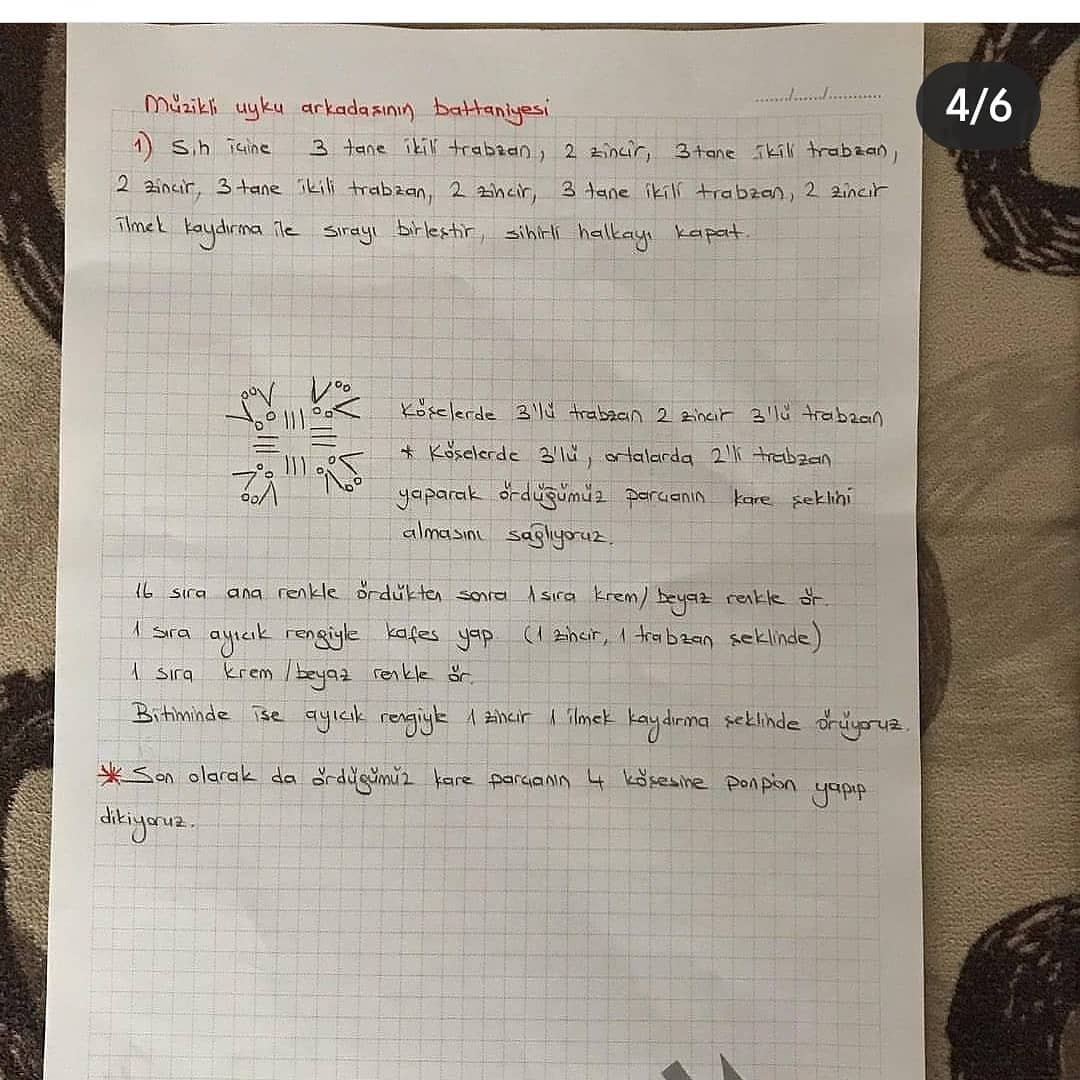 4/6
Müzikli uyku arkadaşının battaniyesi
1) S.h içine 3 tane ikili trabzan, 2 zincir, 3 tane ikili trabzan,
2 zincir, 3 tane ikili trabzan, 2 zincir, 3 tane ikili trabzan, 2 zincir
ilmek kaydırma ile sırayı birleştir, sihirli halkayı kapat.
Köşelerde 3'lü trabzan 2 zincir 3'lü trabzan
* Köşelerde 3'lü, ortalarda 2'li trabzan
yaparak ördüğümüz parçanın kare şeklini
almasını sağlıyoruz.
16 sıra ana renkle ördükten sonra 1 sıra krem/beyaz renkle ör.
1 sıra ayıcık rengiyle kafes yap (1 zincir, 1 trabzan şeklinde)
1 sıra krem/beyaz renkle ör.
Bitiminde ise ayıcık rengiyle 1 zincir 1 ilmek kaydırma şeklinde örüyoruz.
* Son olarak da ördüğümüz kare parçanın 4 köşesine ponpon yapıp
dikiyoruz.